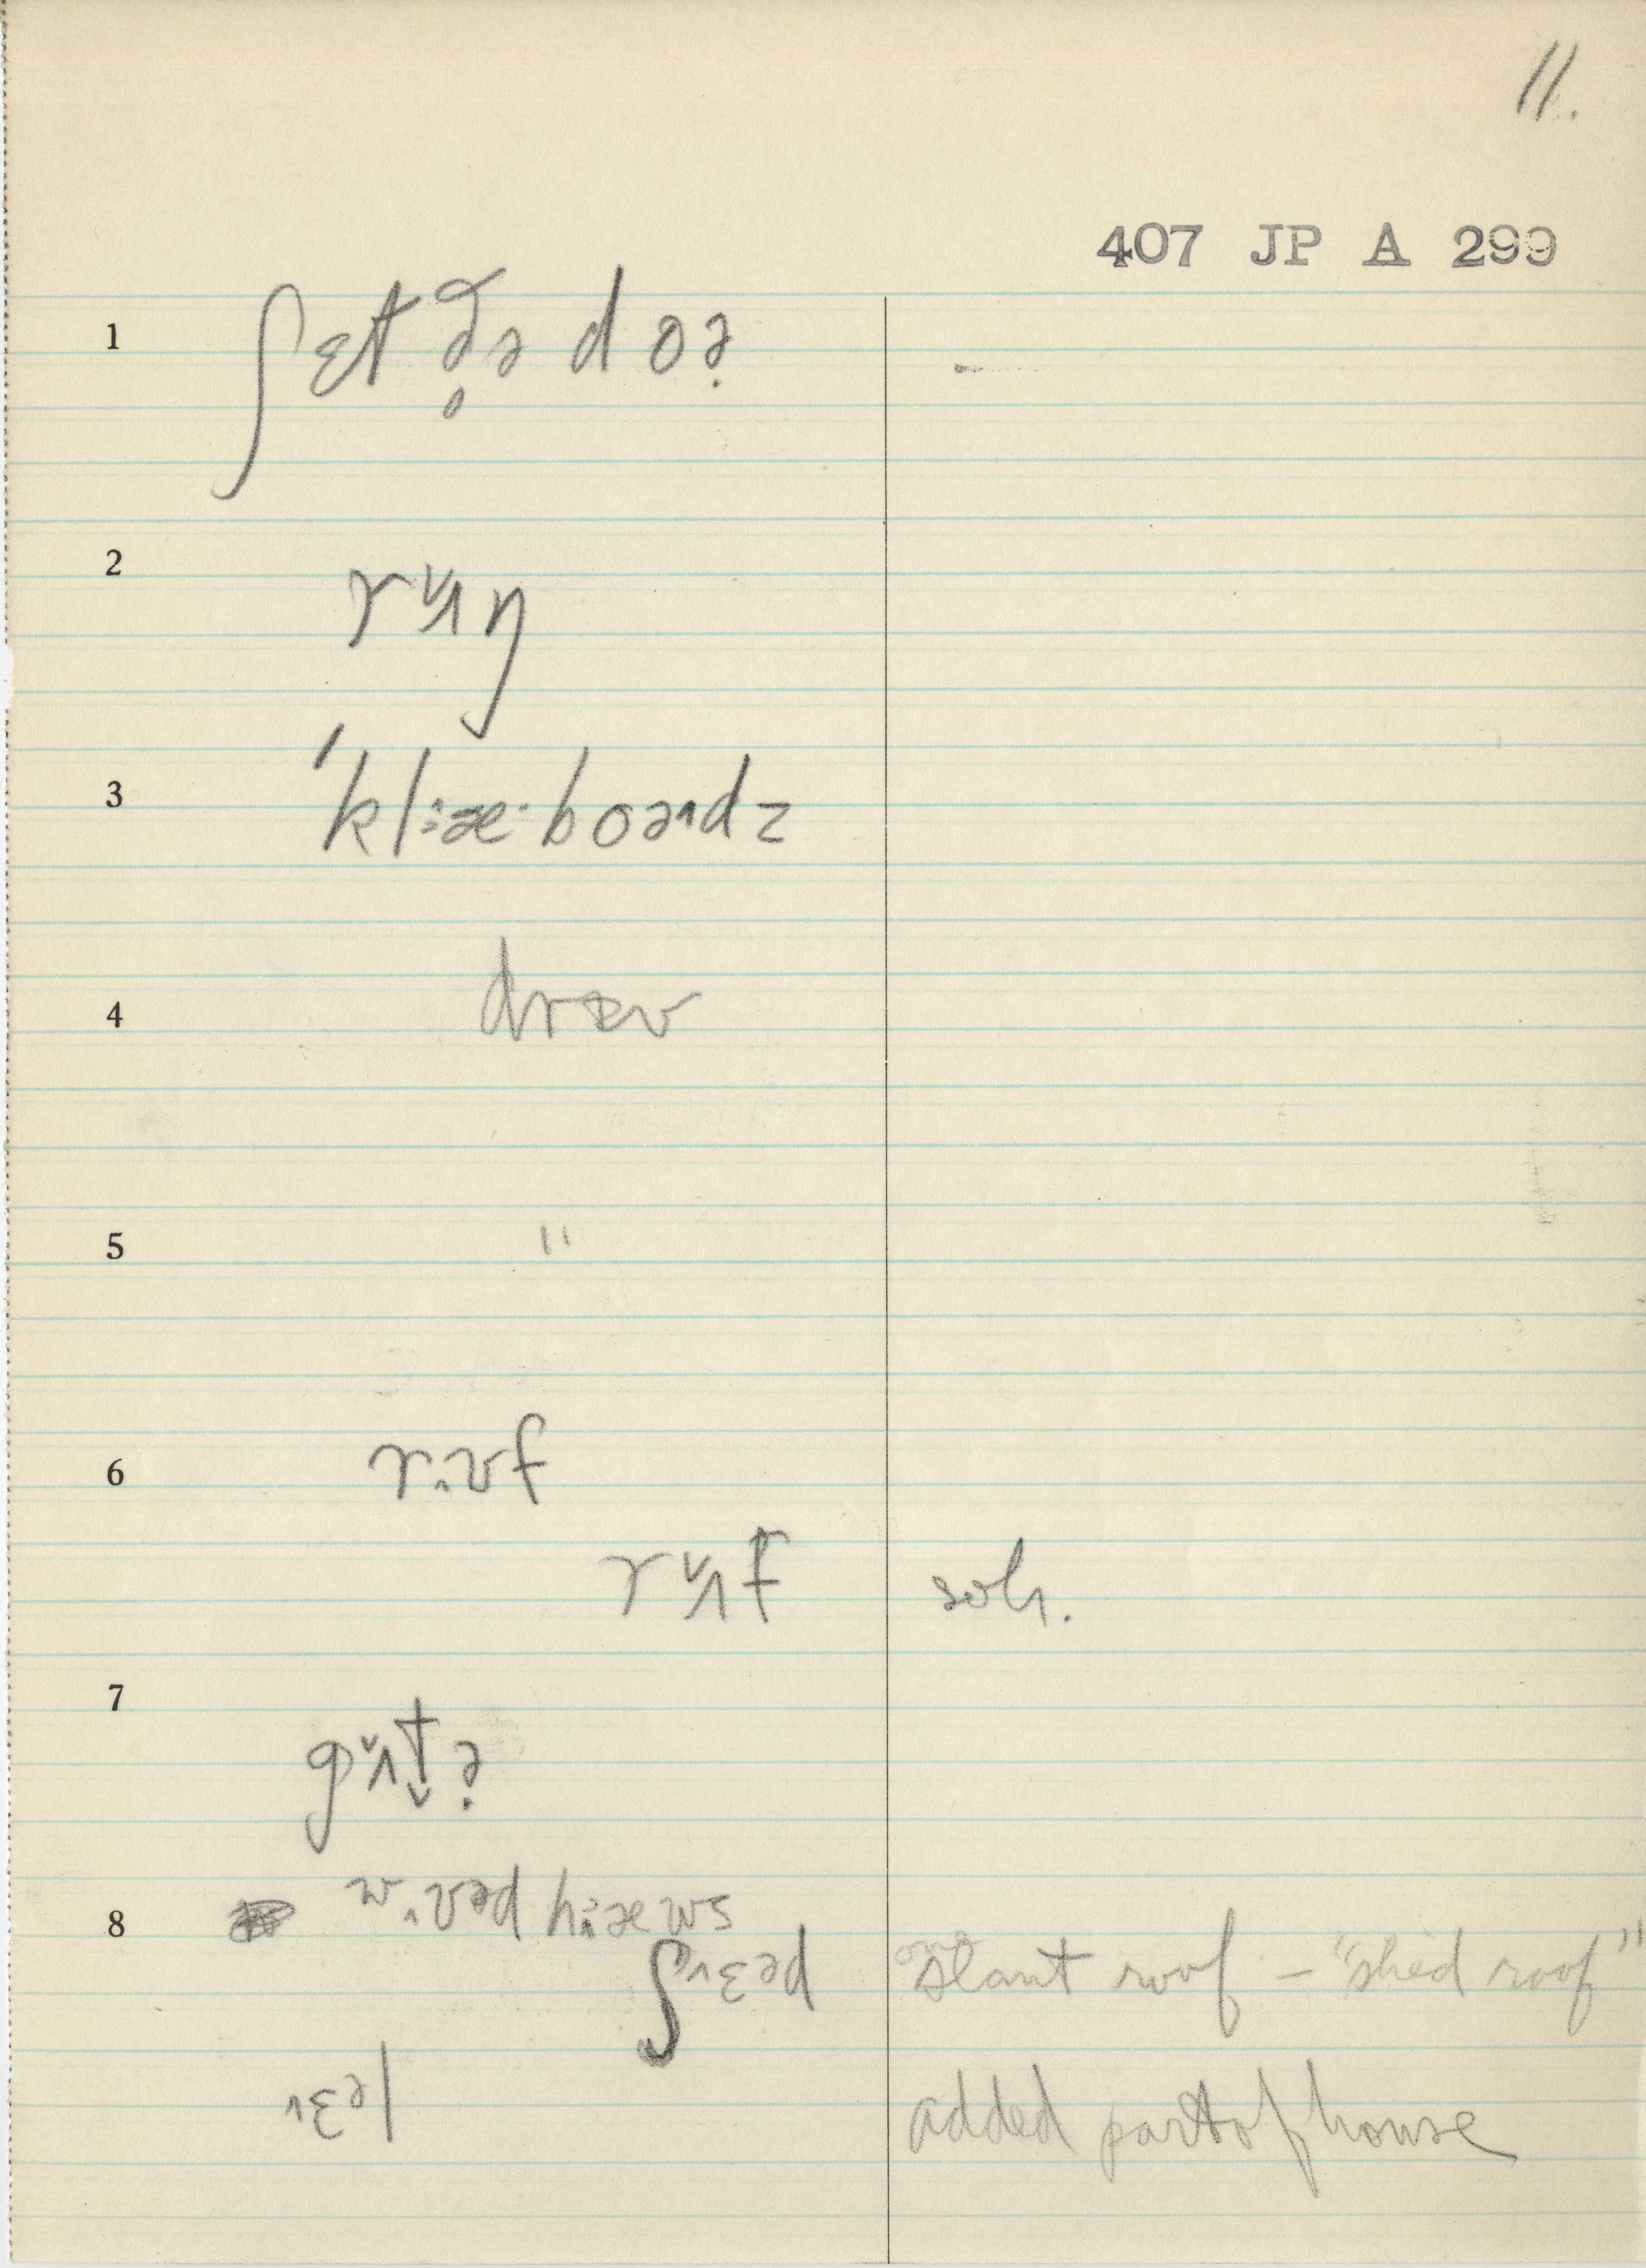 11.
407 JP A 299
1 ʃɛt ð̥ə d oə̣
2 rʉn
3 ˈkl:æ·boədz
4 dræv
5 "
6 r.ʊf
rʉf soh.
7 gʉtə̣
8 w.ʊəd h:æws
ʃɛəd one slant roof – "shed roof"
ɛəl added part of house